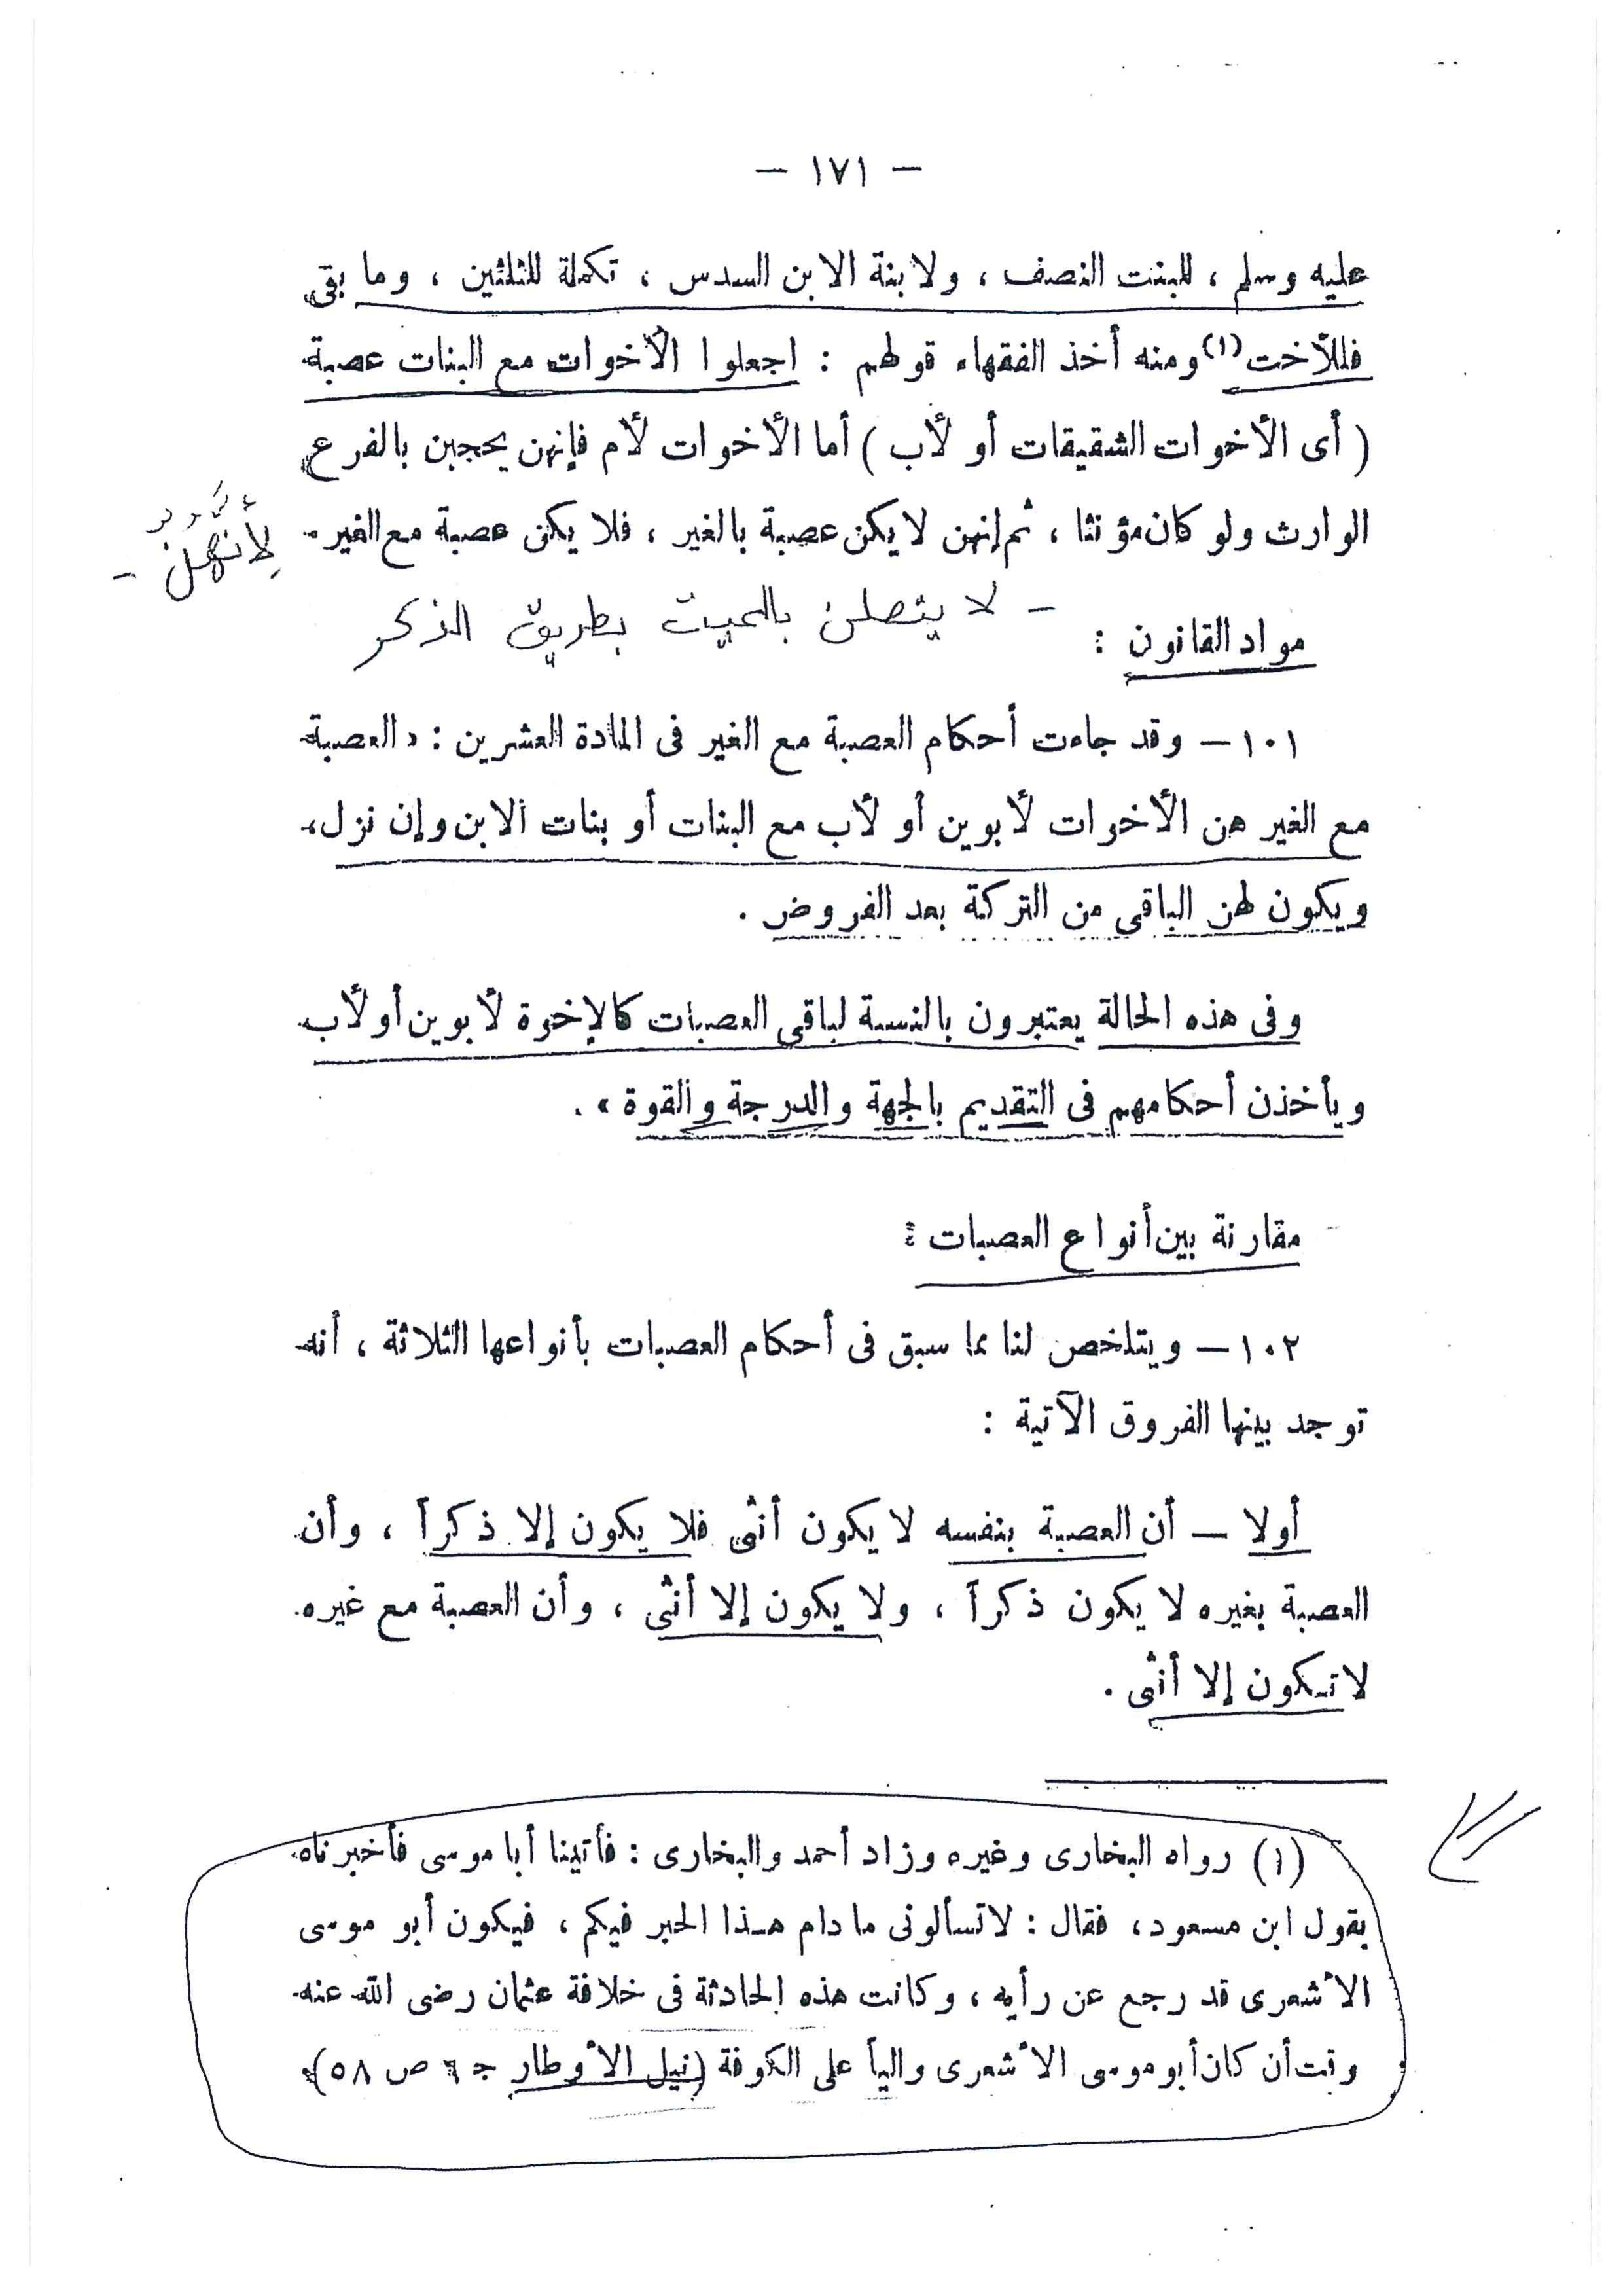 — ١٧١ —
عليه وسلم ، للبنت النصف ، ولابنة الابن السدس ، تكملة للثلثين ، وما بقى
فللأخت (١) ومنه أخذ الفقهاء قولهم : اجعلوا الأخوات مع البنات عصبة
( أى الأخوات الشقيقات أو لأب ) أما الأخوات لأم فإنهن يحجبن بالفرع
الوارث ولو كان مؤنثا ، ثم إنهن لا يكن عصبة بالغير ، فلا يكن عصبة مع الغير .
لأنهن -
- لا يتصلن بالميت بطريق الذكر
مواد القانون :
١٠١ — وقد جاءت أحكام العصبة مع الغير فى المادة العشرين : « العصبة
مع الغير هن الأخوات لأبوين أو لأب مع البنات أو بنات الابن وإن نزل ،
ويكون لهن الباقى من التركة بعد الفروض .
وفى هذه الحالة يعتبرون بالنسبة لباقى العصبات كالإخوة لأبوين أو لأب
ويأخذن أحكامهم فى التقديم بالجهة والدرجة والقوة » .
مقارنة بين أنواع العصبات :
١٠٢ — ويتلخص لنا مما سبق فى أحكام العصبات بأنواعها الثلاثة ، أنه
توجد بينها الفروق الآتية :
أولا — أن العصبة بنفسه لا يكون أنثى فلا يكون إلا ذكراً ، وأن
العصبة بغيره لا يكون ذكراً ، ولا يكون إلا أنثى ، وأن العصبة مع غيره
لا تكون إلا أنثى .
(١) رواه البخارى وغيره وزاد أحمد والبخارى : فأتينا أبا موسى فأخبرناه
بقول ابن مسعود ، فقال : لا تسألونى ما دام هذا الحبر فيكم ، فيكون أبو موسى
الأشعرى قد رجع عن رأيه ، وكانت هذه الحادثة فى خلافة عثمان رضى الله عنه
وقت أن كان أبو موسى الأشعرى والياً على الكوفة (نيل الأوطار ج ٦ ص ٥٨).